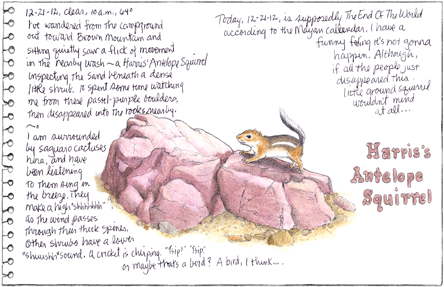 12-21-12, clear, 10 a.m., 64°
I've wandered from the campground
out toward Brown Mountain and
sitting quietly saw a flick of movement
in the nearby wash ~ a Harris' Antelope Squirrel
inspecting the sand beneath a dense
little shrub. It spent some time watching
me from these pastel-purple boulders,
then disappeared into the rocks nearby.
I am surrounded
by saguaro cactuses
here, and have
been listening
to them sing in
the breeze. They
make a high "shhhhhhh"
as the wind passes
through their thick spines.
Other shrubs have a lower
"shuushh" sound. A cricket is chirping. "Trip!" "Trip."
or maybe that's a bird? A bird, I think....
Today, 12-21-12, is supposedly The End Of The World
according to the Mayan calendar. I have a
funny feeling it's not gonna
happen. Although,
if all the people just
disappeared this
little ground squirrel
wouldn't mind
at all...
Harris's
Antelope
Squirrel